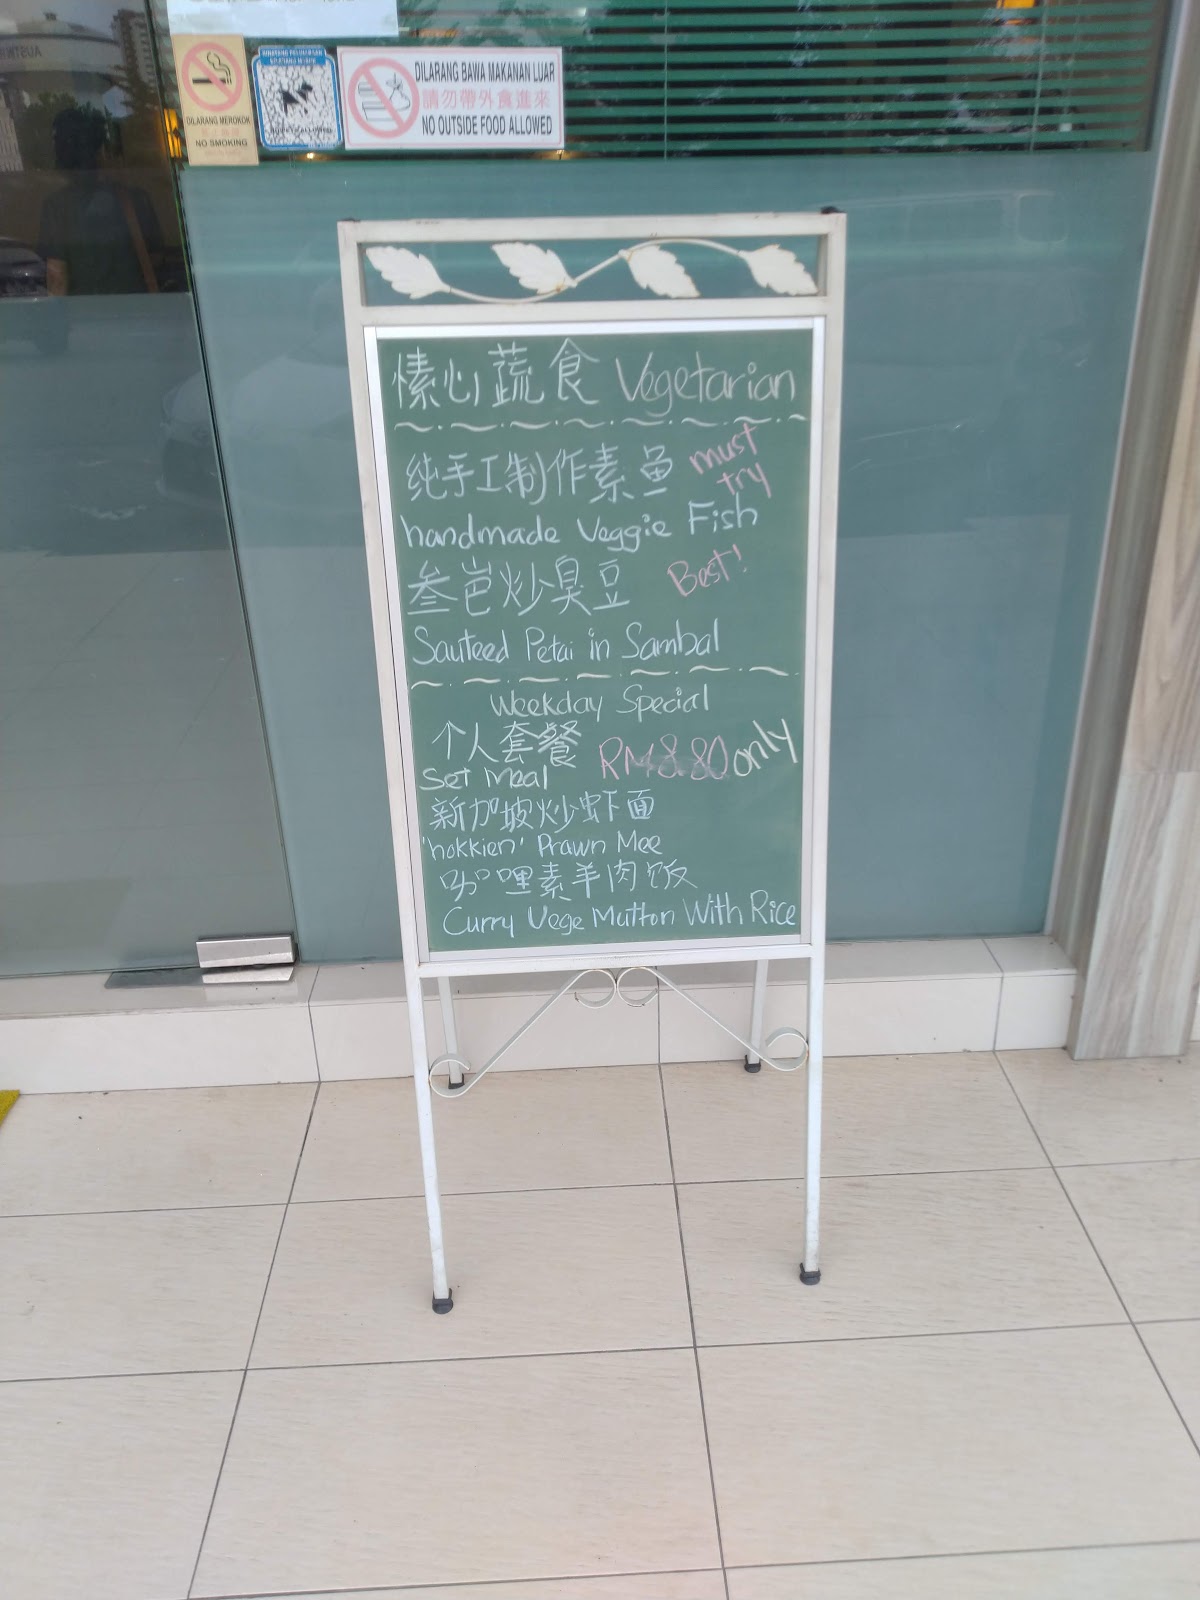 DILARANG MEROKOK
NO SMOKING
DILARANG BAWA MAKANAN LUAR
請勿帶外食進來
NO OUTSIDE FOOD ALLOWED
愫心蔬食 Vegetarian
纯手工制作素鱼 must try
handmade Veggie Fish
叁峇炒臭豆 Best!
Sauteed Petai in Sambal
Weekday Special
个人套餐 RM8.80 only
Set Meal
新加坡炒虾面
'hokkien' Prawn Mee
咖哩素羊肉饭
Curry Vege Mutton With Rice